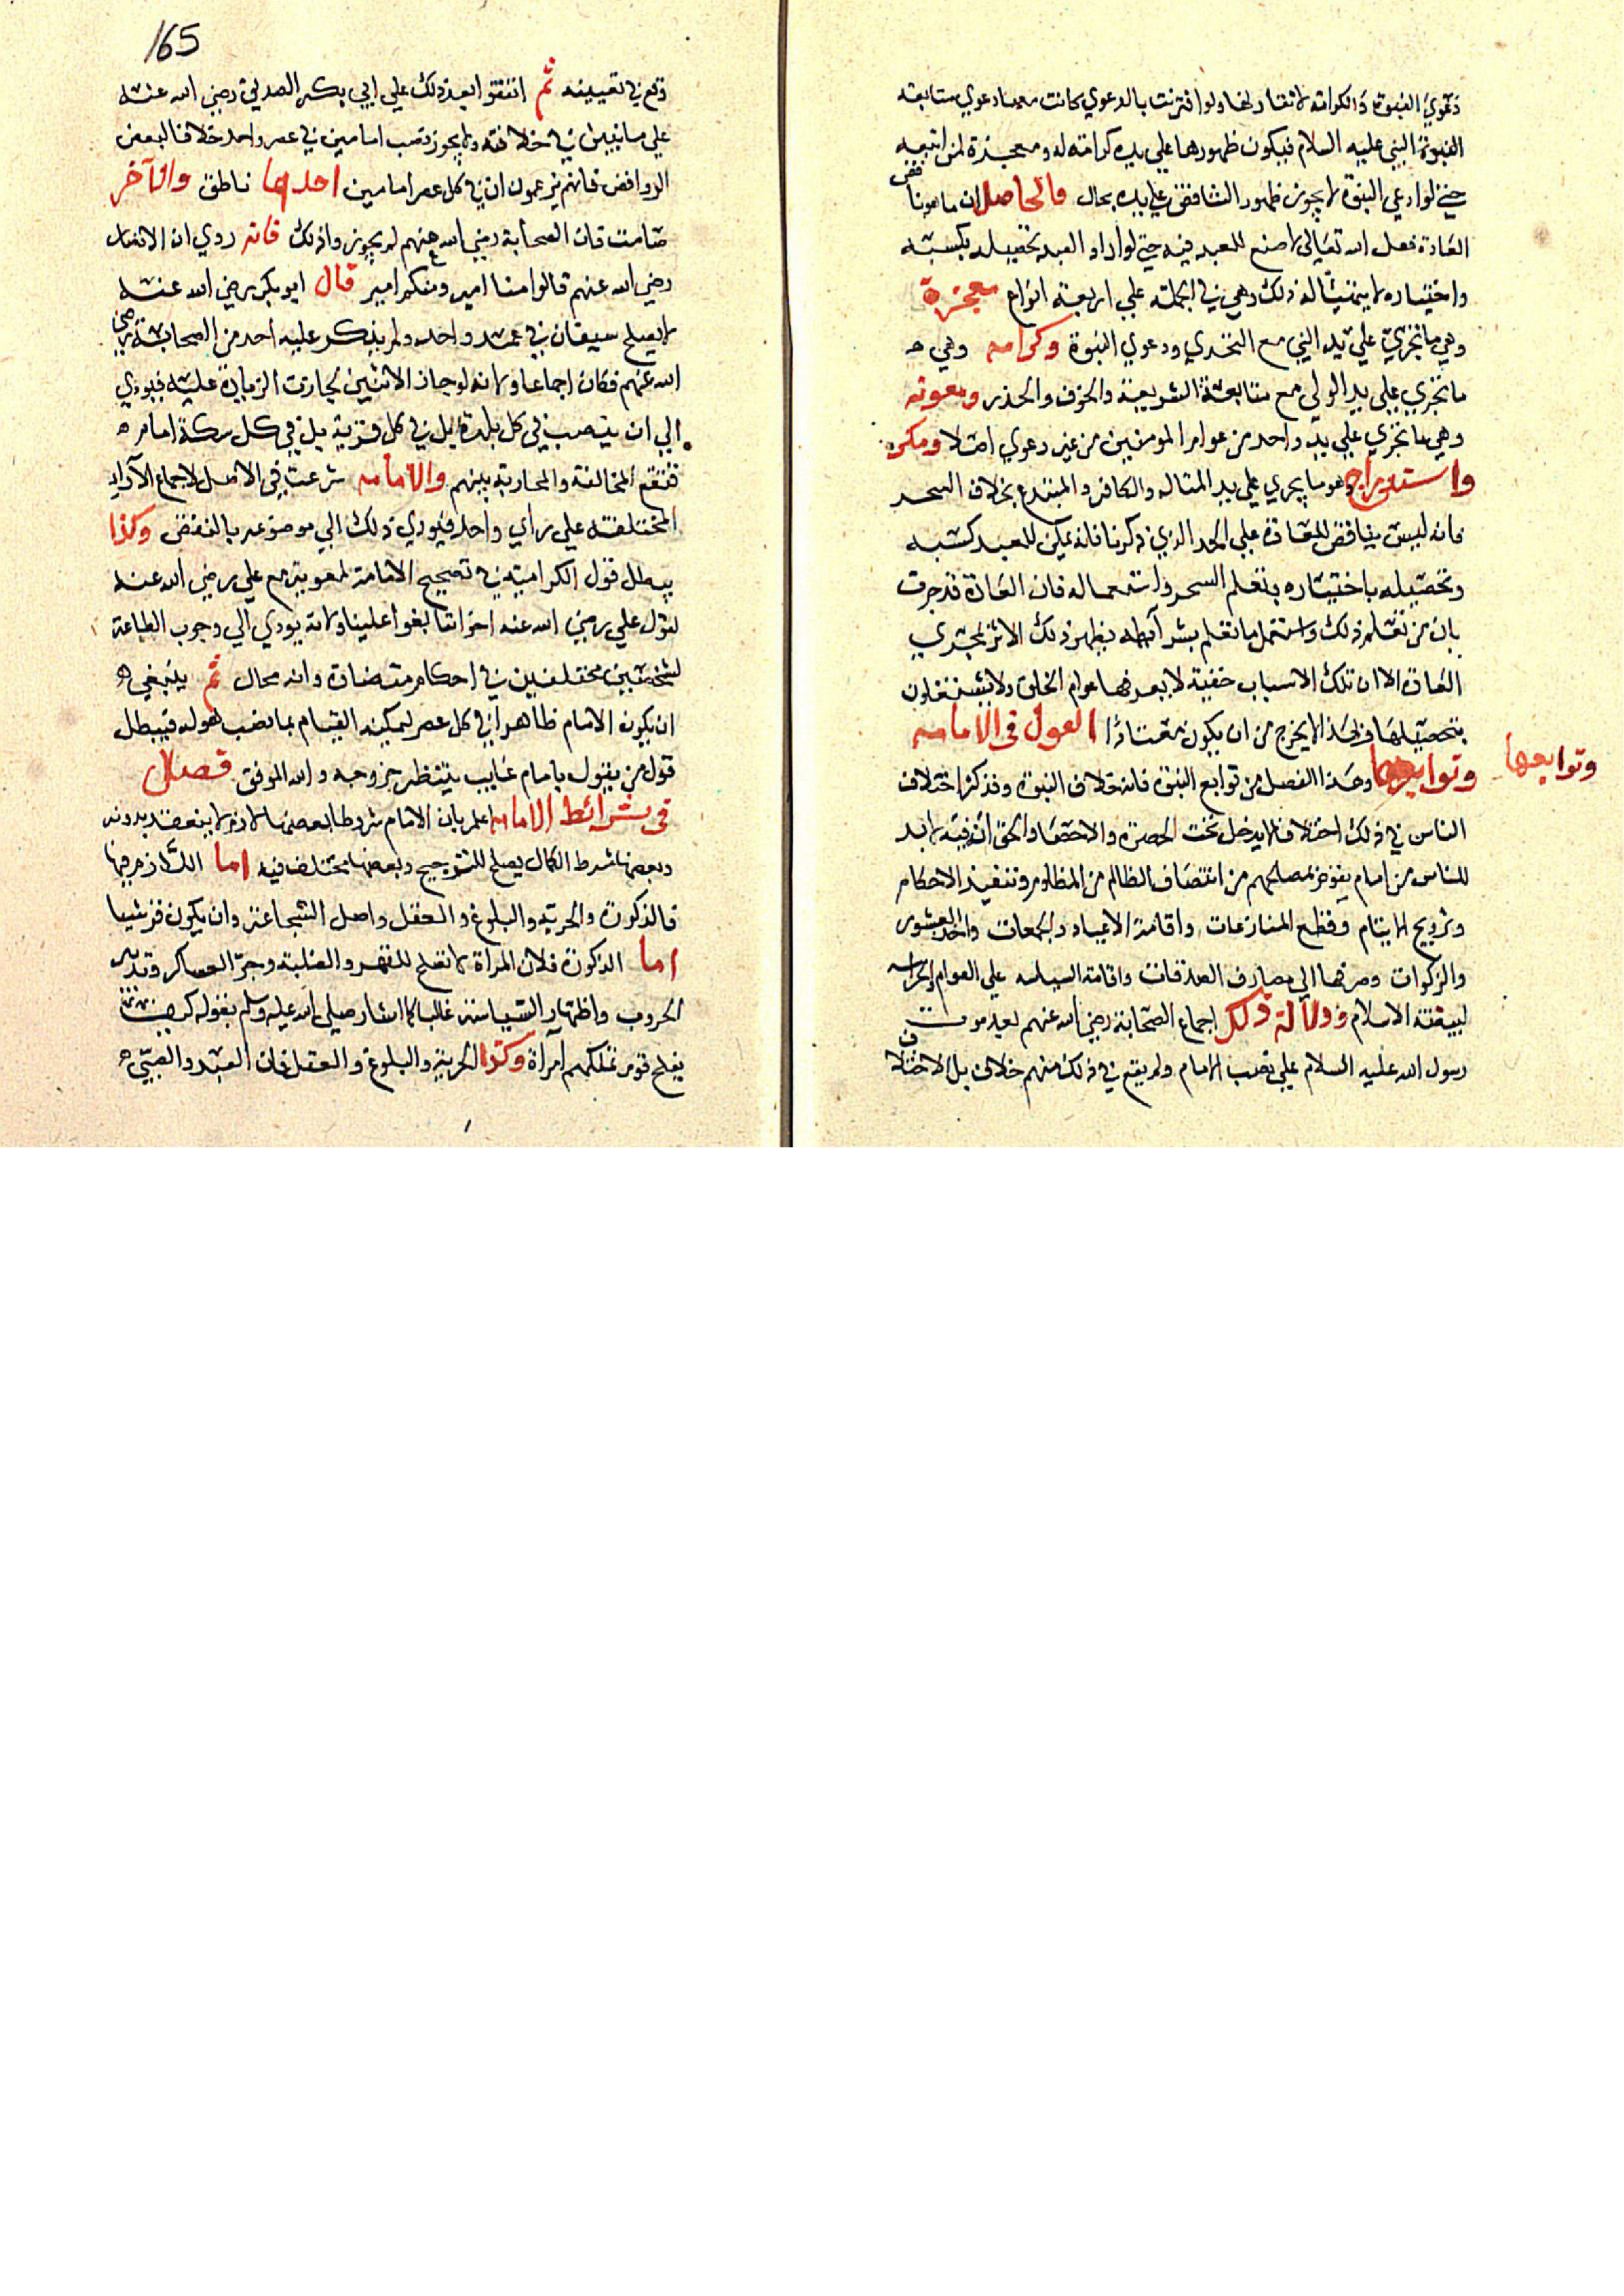 دعوي النبوة والكرامة لا تقارنها ولو اقترنت بالدعوي كانت معها دعوي متابعة
النبوة النبي عليه السلام فيكون ظهورها علي يده كرامة له ومعجزة لمن اتبعه
حتي لو ادعي النبوة لا يجوز ظهور الناقض علي يده بحال والحاصل ان ما هو ناقض
العادة فعل الله تعالي لا صنع للعبد فيه حتي لو اراد العبد تحصيله بكسبه
واختياره لا يتهيأ له ذلك وهي في الجملة علي اربعة انواع معجزة
وهي ما تجري علي يد النبي مع التحدي ودعوي النبوة وكرامة وهي
ما تجري علي يد الولي مع متابعة الشريعة والخوف والحذر ومعونة
وهي ما تجري علي يد واحد من عوام المومنين من غير دعوي اصلا ومكر
واستدراج وهو ما يجري علي يد المتاله والكافر والمبتدع بخلاف السحر
فانه ليس بناقض للعادة علي الحد الذي ذكرنا فانه يمكن للعبد كسبه
وتحصيله باختياره وتعلم السحر واستعماله فان العادة قد جرت
بان من تعلم ذلك واستعمل ما تعلم بشرائطه يظهر ذلك الاثر بمجري
العادة الا ان تلك الاسباب خفية لا يعرفها عوام الخلق ولا يشتغلون
بتحصيلها فلهذا لا يخرج من ان يكون معتادا القول في الامامة
وتوابعها وتوابعها وهذا الفصل من توابع النبوة فانه خلاف النبوة وقد كثر اختلاف
الناس في ذلك اختلافا لا يدخل تحت الحصر والاحصاء والحق انه لا بد
للناس من امام يقوم بمصالحهم من انتصاف الظالم من المظلوم وتنفيذ الاحكام
وتزويج الايتام وقطع المنازعات واقامة الاعياد والجمعات واخذ العشور
والزكوات وصرفها الي مصارف الصدقات واقامة السياسة علي العوام والحراسة
لبيضة الاسلام ودلالة ذلك اجماع الصحابة رضي الله عنهم بعد موت
رسول الله عليه السلام علي نصب الامام ولم يقع في ذلك منهم خلاف بل الاختلاف
165
وقع في تعيينه ثم اتفقوا بعد ذلك علي ابي بكر الصديق رضي الله عنه
علي ما نبين في خلافته ولا يجوز نصب امامين في عصر واحد خلافا لبعض
الروافض فانهم يزعمون ان في كل عصر امامين احدهما ناطق والآخر
صامت فان الصحابة رضي الله عنهم لم يجوزوا ذلك فانه روي ان الانصار
رضي الله عنهم قالوا منا امير ومنكم امير قال ابو بكر رضي الله عنه
لا يصلح سيفان في غمد واحد ولم ينكر عليه احد من الصحابة رضي
الله عنهم فكان اجماعا ولانه لو جاز الاثنين لجازت الزيادة عليه فيودي
الي ان ينصب في كل بلدة بل في كل قرية بل في كل سكة امام
فتقع المخالفة والمحاربة بينهم والامامة شرعت في الاصل لاجماع الآراء
المختلفة علي راي واحد فيودي ذلك الي موضوعه بالنقض وكذا
يبطل قول الكرامية في تصحيح الامامة لمعوية مع علي رضي الله عنه
لقول علي رضي الله عنه اخواننا بغوا علينا ولانه يودي الي وجوب الطاعة
لشخصين مختلفين في احكام متضادة وانه محال ثم ينبغي
ان يكون الامام ظاهرا في كل عصر ليمكنه القيام بما نصب هو له فيبطل
قول من يقول بامام غايب ينتظر خروجه والله الموفق فصل
في شرائط الامامة اعلم بان للامام شروطا بعضها لازم لا ينعقد بدونه
وبعضها شرط الكمال يصلح للترجيح وبعضها مختلف فيه اما اللازم فيها
فالذكورة والحرية والبلوغ والعقل واصل الشجاعة وان يكون قرشيا
اما الذكورة فلان المراة لا تصلح للقهر والغلبة وجر العساكر وتدبير
الحروب واظهار السياسة غالبا كما اشار صلي الله عليه وسلم بقوله كيف
يفلح قوم تملكهم امرأة وكذا الحرية والبلوغ والعقل فان العبد والصبي